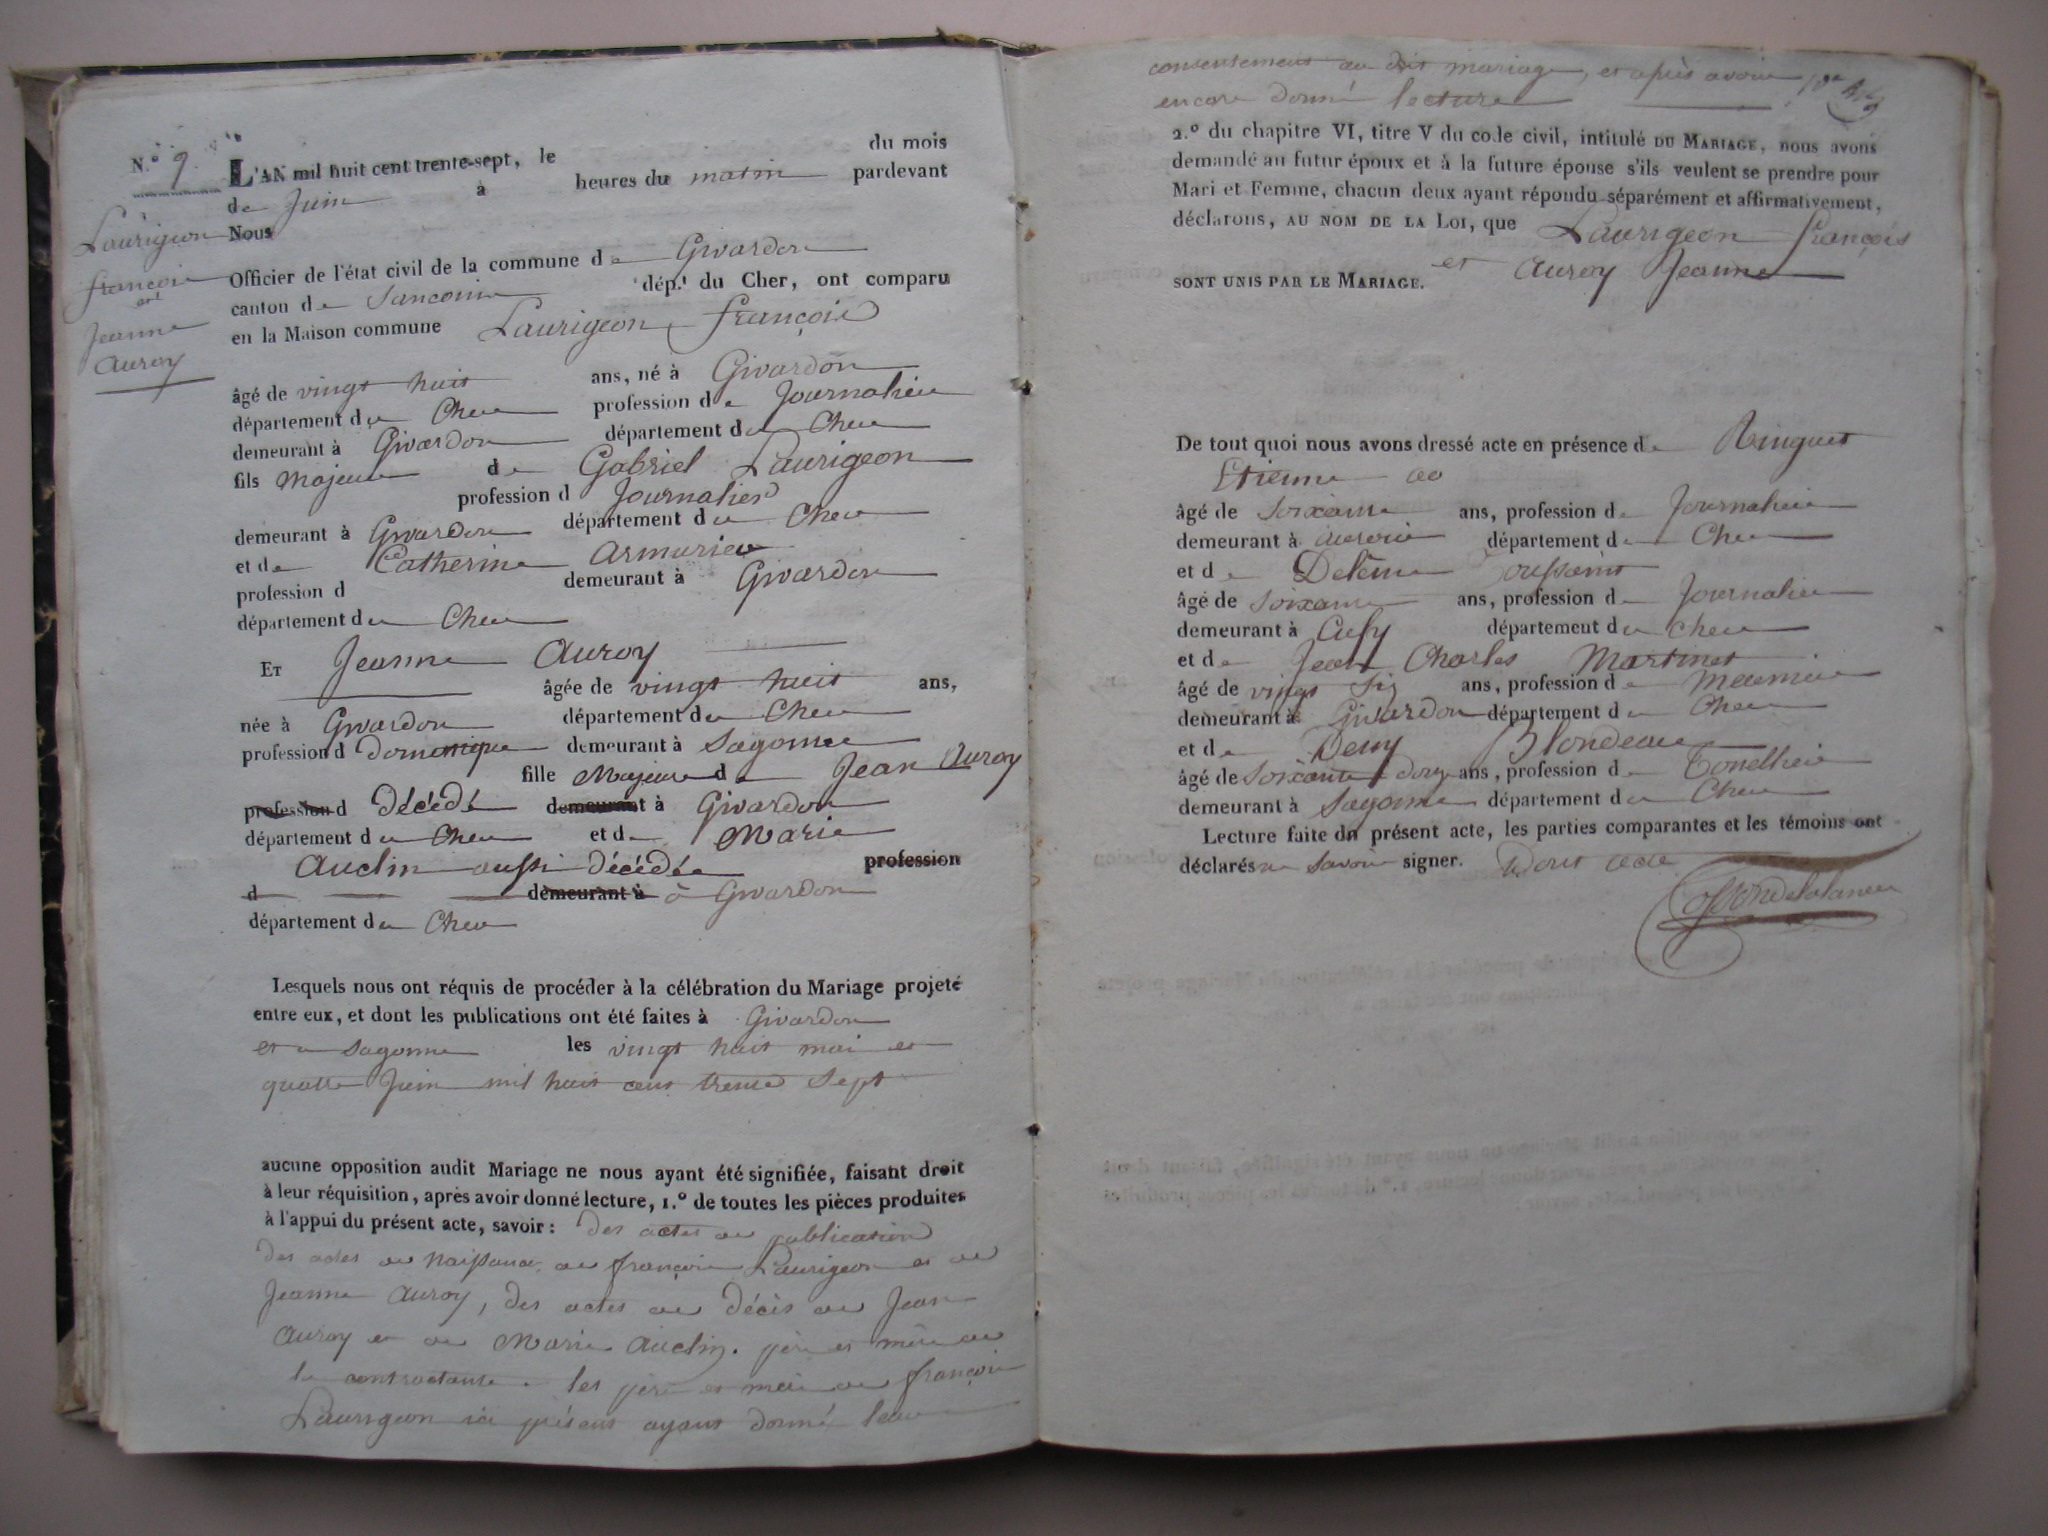 N.º 9
L'AN mil huit cent trente-sept, le
du mois
de Juin à heures du matin pardevant
Nous
Officier de l'état civil de la commune de Givardon
canton de Sancoins dép.t du Cher, ont comparu
en la Maison commune Laurigeon François
Laurigeon
françois
et
Jeanne
Auroy
âgé de vingt huit ans, né à Givardon
département du Cher profession de Journalier
demeurant à Givardon département du Cher
fils Majeur de Gabriel Laurigeon
profession d Journalier
demeurant à Givardon département du Cher
et de Catherine Armurier
profession d demeurant à Givardon
département du Cher
ET Jeanne Auroy
âgée de vingt huit ans,
née à Givardon département du Cher
profession d domestique demeurant à Sagonne
fille Majeure de Jean Auroy
profession d décédé demeurant à Givardon
département du Cher et de Marie
Auclin aussi décédée profession
d demeurant à à Givardon
département du Cher
Lesquels nous ont réquis de procéder à la célébration du Mariage projeté
entre eux, et dont les publications ont été faites à Givardon
et a Sagonne les vingt huit mai et
quatre Juin mil huit cent trente sept
aucune opposition audit Mariage ne nous ayant été signifiée, faisant droit
à leur réquisition, après avoir donné lecture, 1.º de toutes les pièces produites
à l'appui du présent acte, savoir : des actes de publication
des actes de naissance de françois Laurigeon et de
Jeanne Auroy, des actes de décès de Jean
Auroy et de Marie Auclin. père et mère de
la contractante. les père et mère de françois
Laurigeon ici présent ayant donné leur
consentement au dit mariage, et après avoir
encore donné lecture
2.º du chapitre VI, titre V du code civil, intitulé DU MARIAGE, nous avons
demandé au futur époux et à la future épouse s'ils veulent se prendre pour
Mari et Femme, chacun deux ayant répondu séparément et affirmativement,
déclarons, AU NOM DE LA LOI, que Laurigeon françois
et Auroy Jeanne
SONT UNIS PAR LE MARIAGE.
De tout quoi nous avons dressé acte en présence de Ringuet
Etienne
âgé de soixante ans, profession de Journalier
demeurant à département du Cher
et de Delême Toussaint
âgé de soixante ans, profession de Journalier
demeurant à Cuffy département du Cher
et de Jean Charles Martinet
âgé de vingt six ans, profession de Meunier
demeurant à Givardon département du Cher
et de Deny Blondeau
âgé de soixante douze ans, profession de Tonellier
demeurant à Sagonne département du Cher
Lecture faite du présent acte, les parties comparantes et les témoins ont
déclarés ne savoir signer. Dont acte